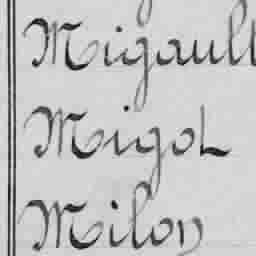 Migault
Migot
Milon